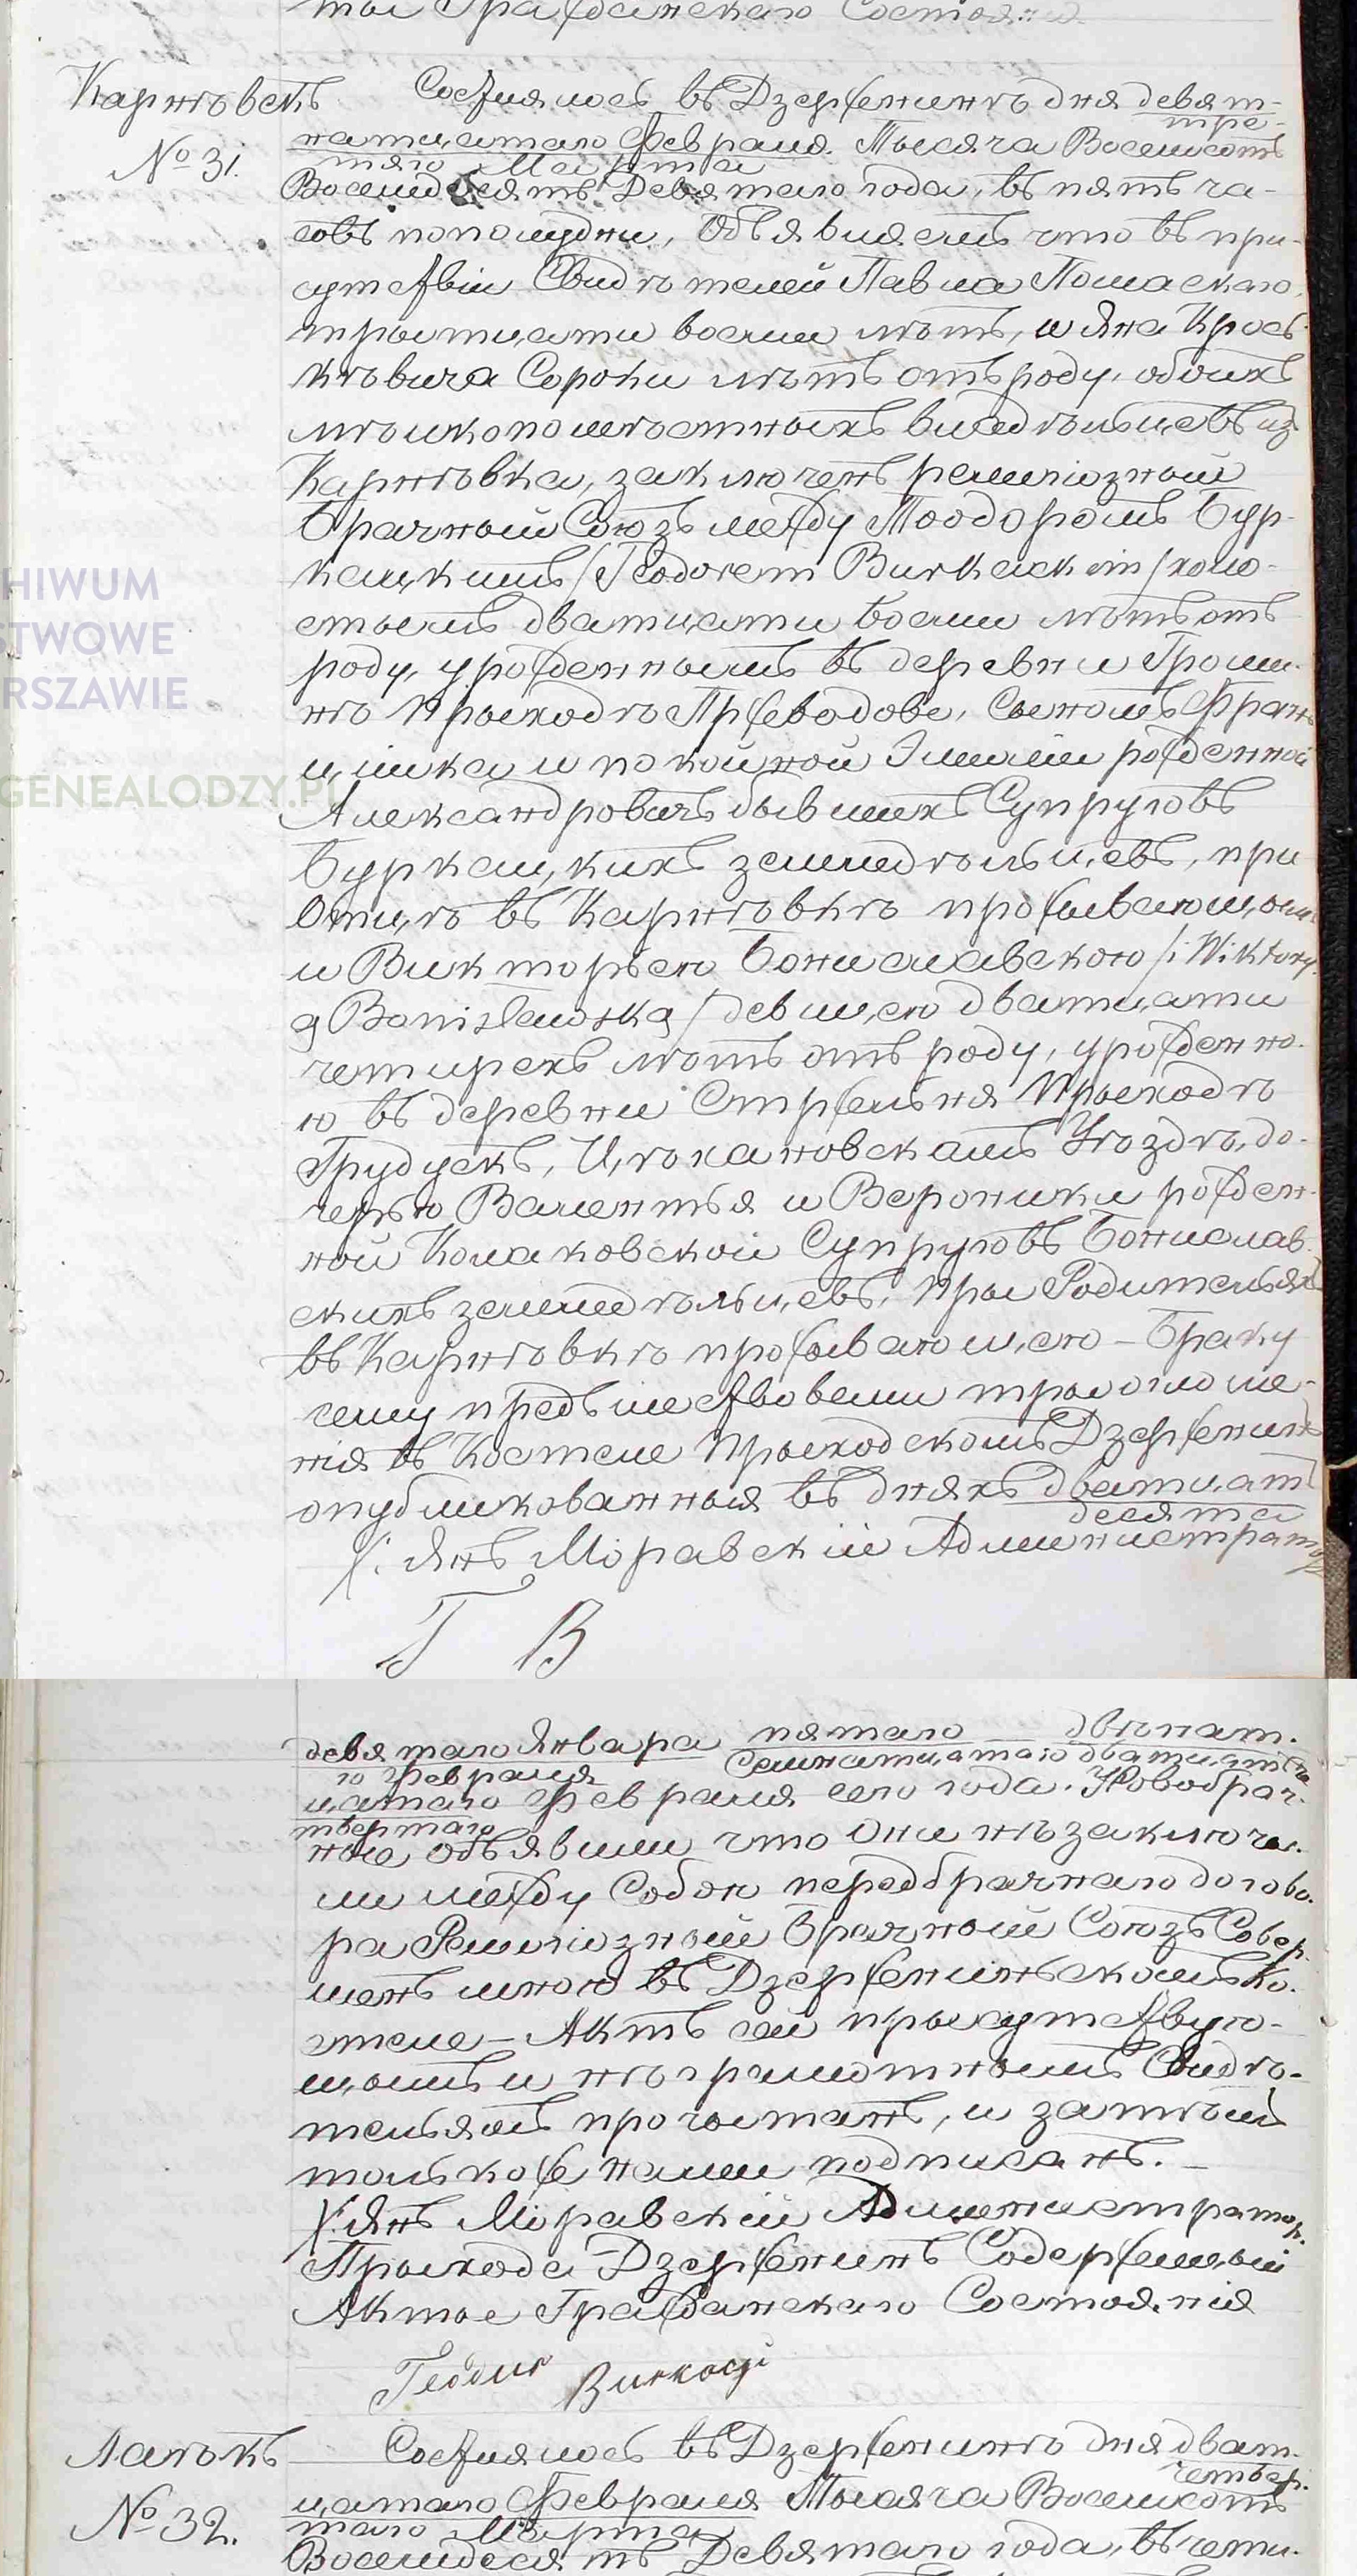 ты Гражданскаго Состоянія
Карнѣвекъ
№ 31.
Состоялось въ Дзерженинѣ дня девят-
тре-
натцатаго Февраля Тысяча Восемсотъ
тяго Марта
Восемдесятъ Девятаго года, въ пять ча-
совъ пополудни, Объявляемъ что въ при-
сутствіи Свидѣтелей Павла Помаскаго
трытцати восми лѣтъ, и Яна
Сороки лѣтъ отъ роду, обоихъ
мѣлкопомѣстныхъ владѣльцевъ из
Карнѣвка, заключенъ религіозный
Брачный Союзъ между Тоодоромъ Бур-
кацкимъ /Teodorem Burkackim/ холо-
стымъ дватцати восми лѣтъ отъ
роду, урожденнымъ въ деревни Громи-
нѣ Прыходѣ Пржеводове, Сыномъ Фран-
цишка и покойной Эмиліи рожденной
Александровичъ бывшихъ Супруговъ
Буркацкихъ земледѣльцевъ, при
Отцѣ въ Карнѣвкѣ прожывающымъ
и Викторыею Бониславскою /: Wiktory-
ą Bonisławską / девицею дватцати
четырехъ лѣтъ отъ роду, урожденно-
ю въ деревни Стржельня Прыходѣ
Грудускъ, Цѣхановскамъ Уѣздѣ, до-
черью Валентья и Вероники рожден-
ной Колаковской Супруговъ Бонислав-
скихъ земледѣльцевъ, Пры Родительяхъ
въ Карнѣвкѣ прожывающею – Браку
сему предъшествовали трыоглоше-
нія въ Костеле Прыходскомъ Дзерженинъ
опубликованныя въ дняхъ дватцать
десята
/: Янъ Моравскій Администратор
Т В
девятаго Января пятаго двѣнат-
го Февраля семнатцатаго дватцать че-
цатаго Февраля сего года. Новобрач-
твертаго
ные объявили что Они нѣ заключи-
ли между Собою передбрачнаго догово-
ра Религіозный Брачный Союзъ Совер-
шенъ мною въ Дзержениньскомъ Ко-
стеле – Актъ сей прысутствую-
щымъ и нѣграмотнымъ Свидѣ-
тельямъ прочытанъ, и затѣмъ
только же нами подписанъ. –
/: Янъ Моравскій Администратор.
Прыхода Дзерженинъ Содержащый
Акты Гражданскаго Состоянія
Латъкъ
№ 32.
Состоялось въ Дзерженинѣ дня дват-
четвер-
цатаго Февраля Тысяча Восемсотъ
таго Марта
Восемдесятъ Девятаго года, въ четы-